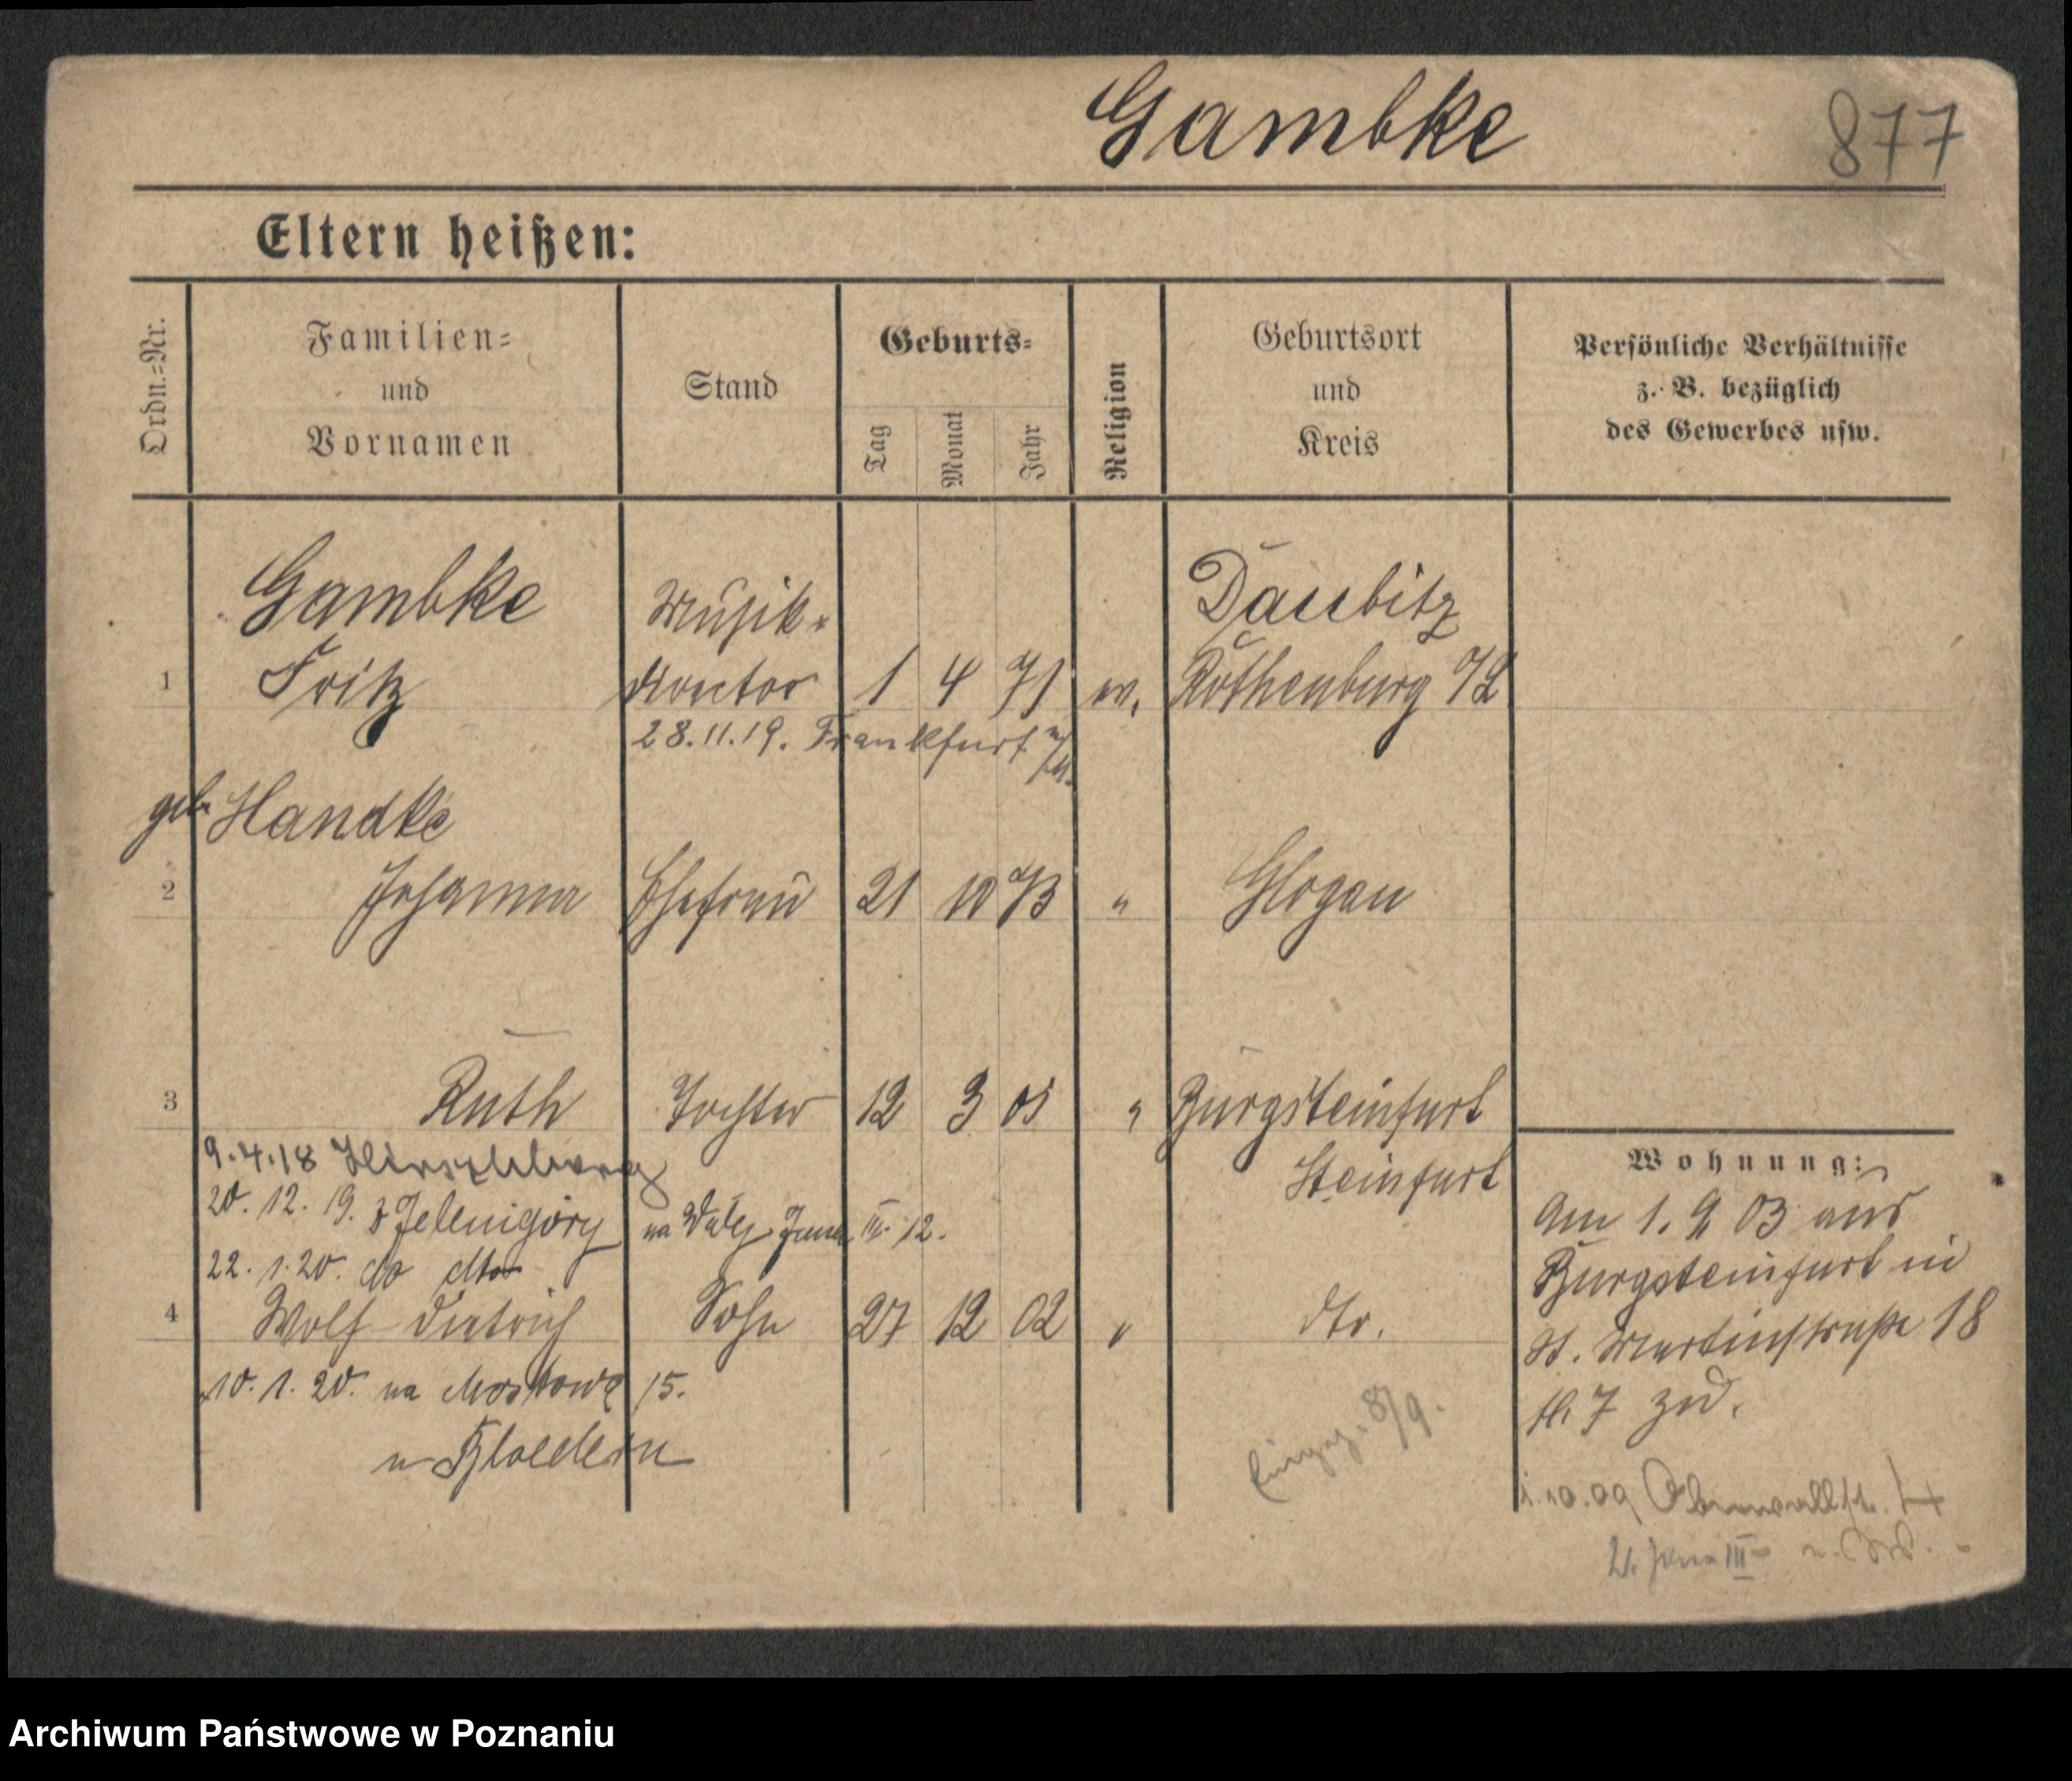 Gambke 877
Eltern heißen:
Ordn.=Nr.
Familien=
und
Vornamen
Stand
Geburts=
Tag
Monat
Jahr
Religion
Geburtsort
und
Kreis
Persönliche Verhältnisse
z. B. bezüglich
des Gewerbes usw.
Gambke Musik= Daubitz
1 Fritz director 1 4 71 ev. Rothenburg O/L
28.11.19. Frankfurt a/M.
geb. Handke
2 Johanna Ehefrau 21 10 73 " Glogau
3 Ruth Tochter 12 3 " Burgsteinfurt
Steinfurt
9.4.18 Hirschberg
20. 12. 19. z Jelenigóry na Wały Jana III. 12.
22. 1. 20. do dto
4 Wolf Dietrich Sohn 27 12 02 " dto.
10. 1. 20. na Mostową 15.
u
Wohnung:
Am 1. 9 03 aus
Burgsteinfurt in
St. Martinstraße 18
7
8/9.
1.10.09
Jana III
Archiwum Państwowe w Poznaniu